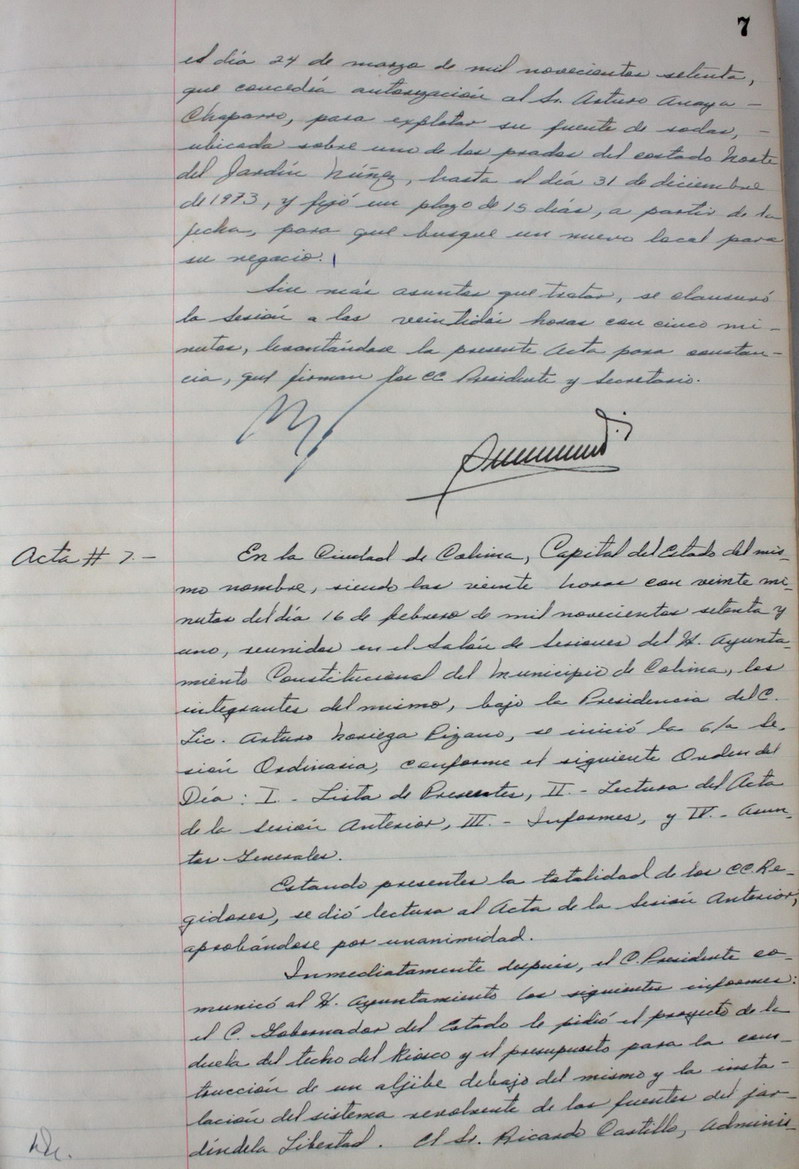 7
el día 24 de marzo de mil novecientos setenta,
que concedía autorización al Sr. Arturo Anaya -
Chaparro, para explotar su fuente de sodas, -
ubicada sobre uno de los prados del costado Norte
del Jardín Núñez, hasta el día 31 de diciembre
de 1973, y fijó un plazo de 15 días, a partir de la
fecha, para que busque un nuevo local para
su negocio.
Sin más asuntos que tratar, se clausuró
la Sesión a las veintidós horas con cinco mi-
nutos, levantándose la presente Acta para constan-
cia, que firman los CC. Presidente y Secretario.
Acta # 7.-
En la Ciudad de Colima, Capital del Estado del mis-
mo nombre, siendo las veinte horas con veinte mi-
nutos del día 16 de febrero de mil novecientos setenta y
uno, reunidos en el Salón de Sesiones del H. Ayunta-
miento Constitucional del Municipio de Colima, los
integrantes del mismo, bajo la Presidencia del C.
Lic. Arturo Noriega Pizano, se inició la 6/a Se-
sión Ordinaria, conforme el siguiente Orden del
Día: I - Lista de Presentes, II.- Lectura del Acta
de la Sesión Anterior, III.- Informes, y IV.- Asun-
tos Generales.
Estando presentes la totalidad de los CC. Re-
gidores, se dió lectura al Acta de la Sesión Anterior,
aprobándose por unanimidad.
Inmediatamente después, el C. Presidente co-
municó al H. Ayuntamiento los siguientes informes:
el C. Gobernador del Estado le pidió el proyecto de la
duela del techo del Kiosco y el presupuesto para la cons-
trucción de un aljibe debajo del mismo y la insta-
lación del sistema revolvente de las fuentes del jar-
dín de la Libertad. El Sr. Ricardo Castillo, Adminis-